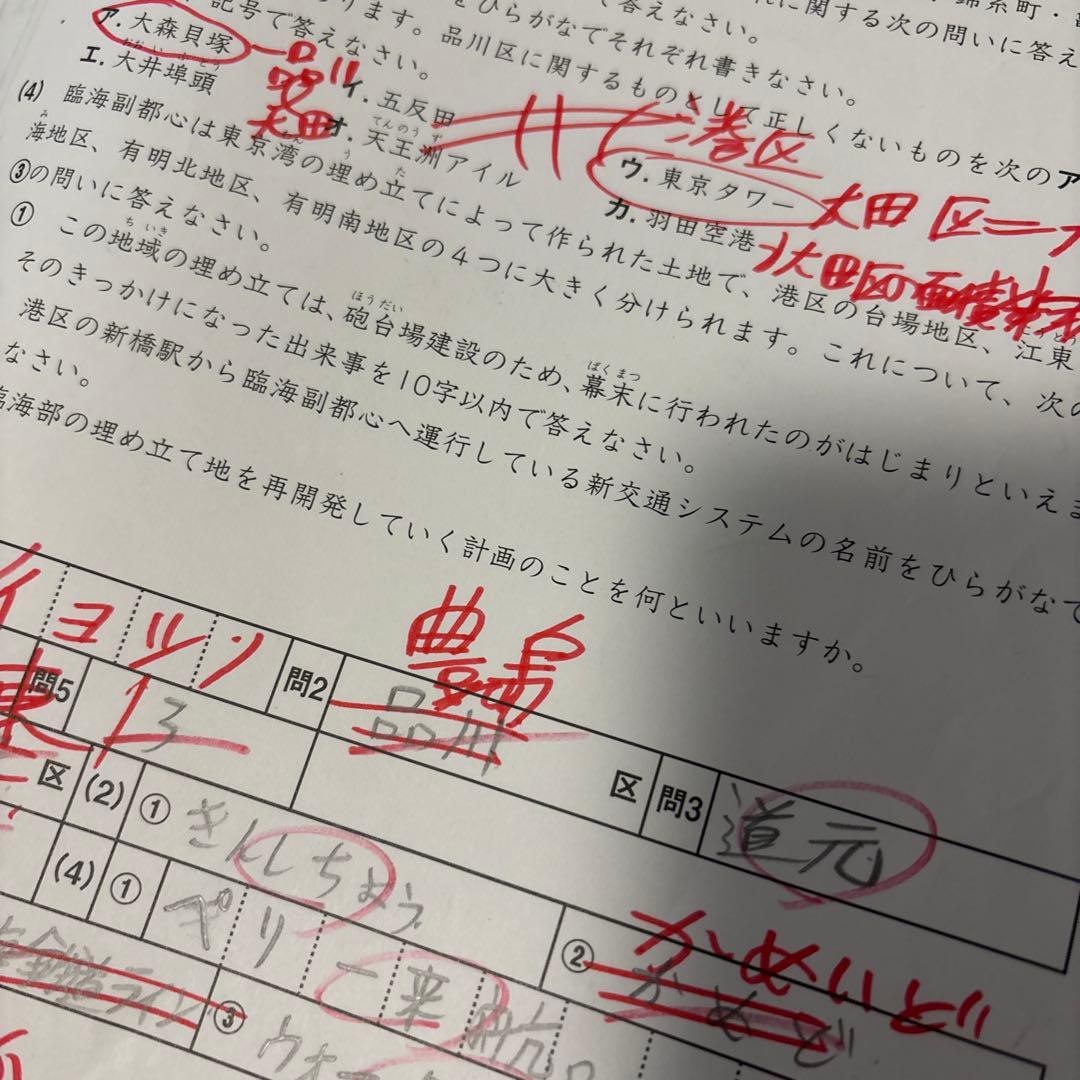 記号で答えなさい。
をひらがなでそれぞれ書きなさい。
に関する次の問いに答え
ります。品川区に関するものとして正しくないものを次のア
ア.大森貝塚
品川
大田
イ.五反田
港区
ウ.東京タワー
大田区
エ.大井埠頭
オ.天王洲アイル
カ.羽田空港
大田区の面積
(4) 臨海副都心は東京湾の埋め立てによって作られた土地で、港区の台場地区、江東
海地区、有明北地区、有明南地区の4つに大きく分けられます。これについて、次の
③の問いに答えなさい。
① この地域の埋め立ては、砲台場建設のため、幕末に行われたのがはじまりといえま
そのきっかけになった出来事を10字以内で答えなさい。
港区の新橋駅から臨海副都心へ運行している新交通システムの名前をひらがなで
なさい。
臨海部の埋め立て地を再開発していく計画のことを何といいますか。
イヨツン
問2
豊島
品川
区
問3
道元
問5
13
東
区
(2)
①
きんしちょう
②
かめいど
かめど
(4)
①
ペリー来航
③
ウォ